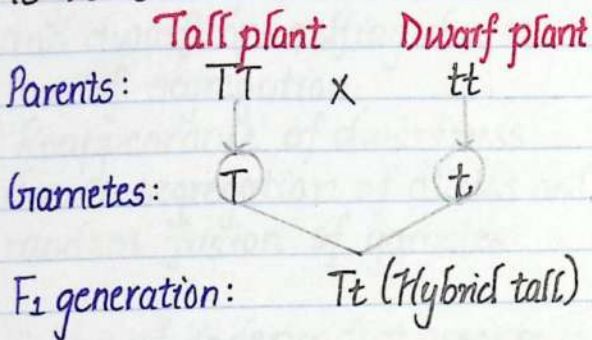 Tall plant Dwarf plant
Parents: TT x tt
Gametes: T t
F1 generation: Tt (Hybrid tall)